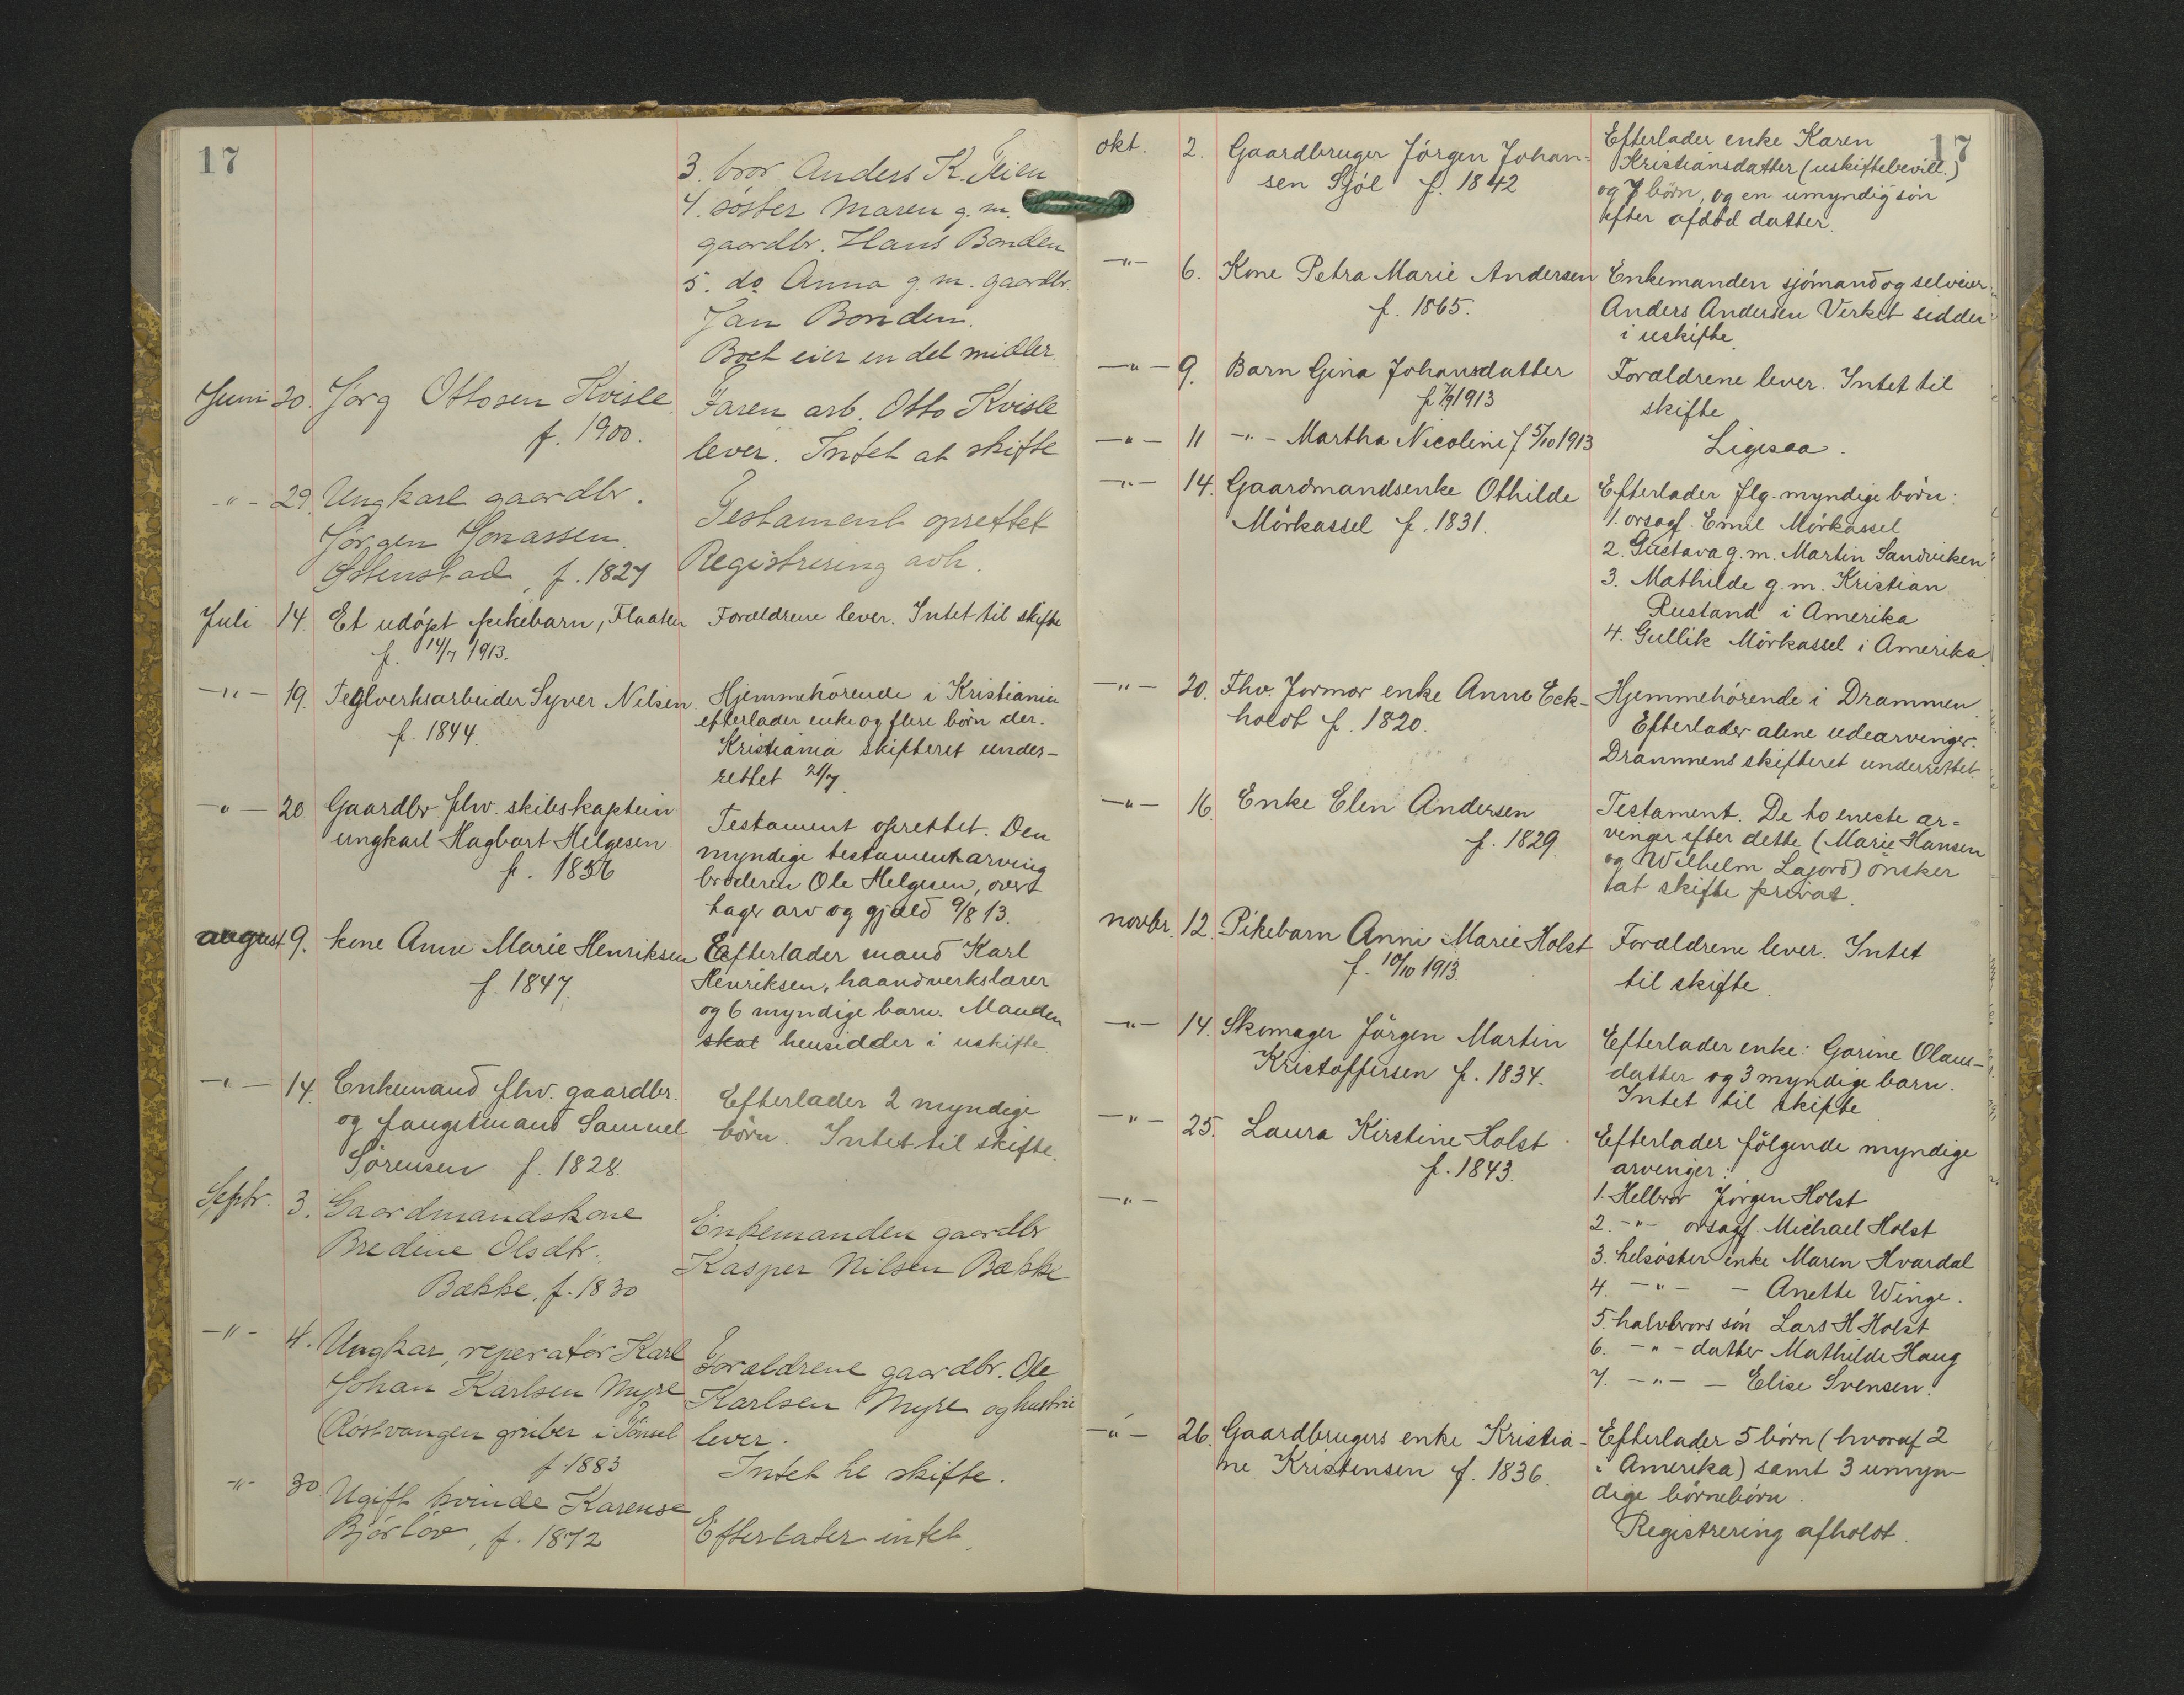 17
3. bror Anders K. Teien
4. søster Maren g. m.
gaardbr. Hans Bonden
5. do Anna g. m. gaardbr.
Jan Bonden.
Boet eier en del midler.
Juni 20. Jørg Ottosen Kvisle,
f. 1900.
Faren arb. Otto Kvisle
lever. Intet at skifte
-"- 29. Ungkarl gaardbr.
Jørgen Jonassen
Østenstad, f. 1827
Testament oprettet
Registrering avh.
Juli 14. Et udøpt pikebarn, Flaaten
f. 14/7 1913.
Forældrene lever. Intet til skifte
-"- 19. Teglverksarbeider Syver Nilsen
f. 1844.
Hjemmehørende i Kristiania
efterlader enke og flere børn der.
Kristiania skifteret under-
rettet 21/7.
-"- 20. Gaardbr. fhv. skibskaptein
ungkarl Hagbart Helgesen
f. 1856
Testament oprettet. Den
myndige testamentarving
broderen Ole Helgesen, over
tager arv og gjæld 9/8 13.
august 9. kone Anne Marie Henriksen
f. 1847.
Efterlader mand Karl
Henriksen, haandverkslærer
og 6 myndige barn. Manden
skal hensidder i uskifte.
-"- 14. Enkemand fhv. gaardbr.
og fangstmand Samuel
Sørensen f. 1828.
Efterlader 2 myndige
børn. Intet til skifte.
Septr. 3. Gaardmandskone
Bredine Olsdtr.
Bække, f. 1830
Enkemanden gaardbr
Kasper Nilsen Bække
-"- 4. Ungkar, reperatør Karl
Johan Karlsen Myre
(Røstvangen gruber i Tønset
f. 1883
Forældrene gaardbr. Ole
Karlsen Myre og hustru
lever.
Intet til skifte.
-"- 30. Ugift kvinde Karense
Bjørløv, f. 1872
Efterlater intet.
17
okt. 2. Gaardbruger Jörgen Johan-
sen Sjöl f. 1842
Efterlader enke Karen
Kristiansdatter (uskiftebevill.)
og 7 börn, og en umyndig sön
efter afdöd datter.
-"- 6. Kone Petra Marie Andersen
f. 1865.
Enkemanden sjömand og selveier
Anders Andersen Verket sidder
i uskifte.
-"- 9. Barn Gina Johansdatter
f. 7/9 1913
Forældrene lever. Intet til
skifte
-"- 11 -"- Martha Nicolini f 5/10 1913
Ligesaa.
-"- 14. Gaardmandsenke Othilde
Mörkassel f. 1831.
Efterlader flg. myndige börn:
1. orsagf. Emil Mörkassel
2. Gustava g. m. Martin Sandviken
3. Mathilde g. m. Kristian
Rustand i Amerika
4. Gullik Mörkassel i Amerika.
-"- 20. Fhv. Jormor enke Anne Eck-
holdt f. 1820.
Hjemmehörende i Drammen.
Efterlader alene udearvinger.
Drammens skifteret underrettet
-"- 16. Enke Elen Andersen
f. 1829.
Testament. De to eneste ar-
vinger efter dette (Marie Hansen
og Wilhelm Lajord) önsker
at skifte privat.
novbr. 12. Pikebarn Anni Marie Holst
f. 10/10 1913.
Forældrene lever. Intet
til skifte.
-"- 14. Skomager Jörgen Martin
Kristoffersen f. 1834.
Efterlader enke: Gorine Olaus-
datter og 3 myndige barn.
Intet til skifte
-"- 25. Laura Kirstine Holst
f. 1843.
Efterlader fölgende myndige
arvinger:
-"-
1. Helbror Jörgen Holst
2. -"- orsagf. Michael Holst
3. helsöster enke Maren Hvardal
4. -"- - Anette Winge.
5. halvbrors sön Lars H Holst
6. -"- datter Mathilde Haug
7. -"- - Elise Svensen.
-"- 26. Gaardbrugers enke Kristia-
ne Kristensen f. 1836.
Efterlader 5 börn (hvoraf 2
i Amerika) samt 3 umyn-
dige börnebörn.
Registrering afholdt.